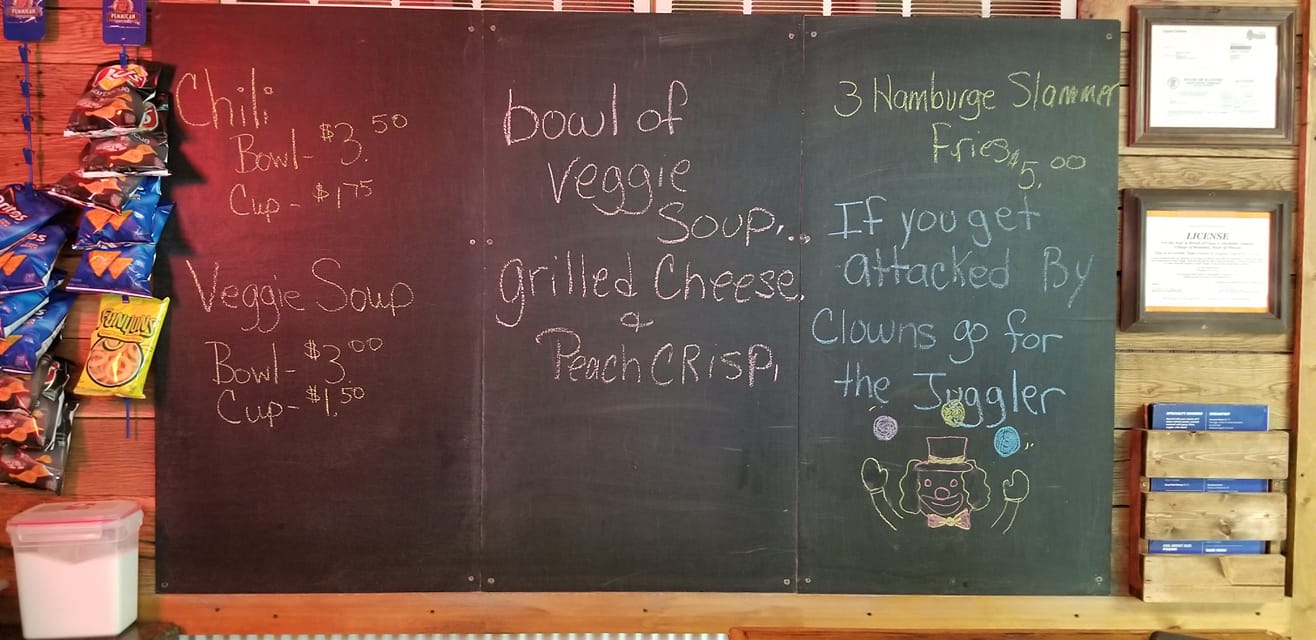 Chili
Bowl - $3.50
Cup - $1.75
Veggie Soup
Bowl - $3.00
Cup - $1.50
bowl of
Veggie
Soup,
grilled Cheese,
&
Peach CRisp,
3 Hamburge Slammer
Fries $5.00
If you get
attacked By
Clowns go for
the Juggler
PEMMICAN
PEMMICAN
FUNYUNS
LICENSE